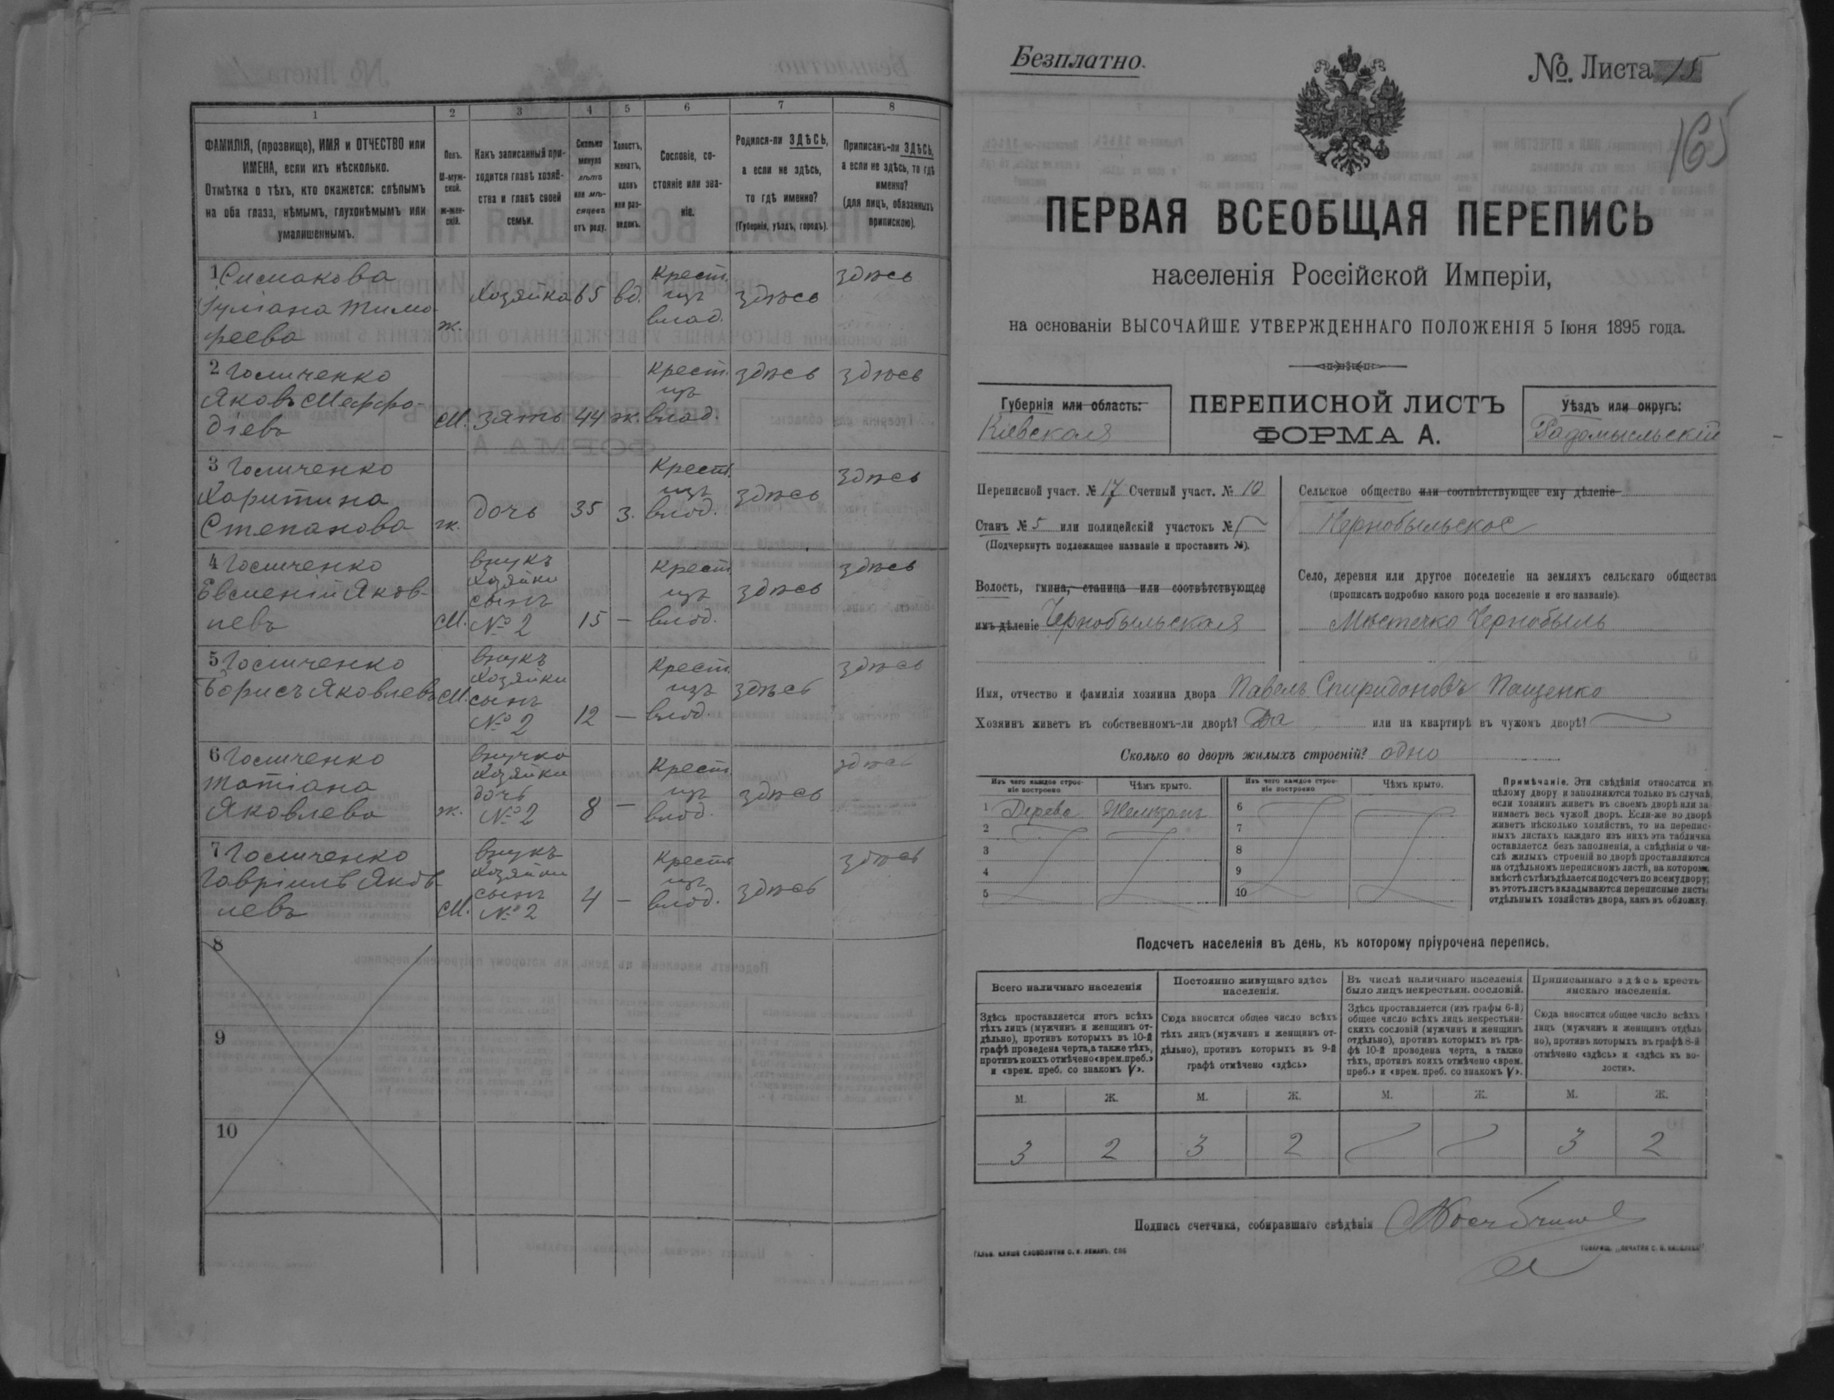 1
2
3
4
5
6
7
8
ФАМИЛІЯ, (прозвище), ИМЯ и ОТЧЕСТВО или
ИМЕНА, если ихъ нѣсколько.
Отмѣтка о тѣхъ, кто окажется: слѣпымъ
на оба глаза, нѣмымъ, глухонѣмымъ или
умалишеннымъ.
Полъ.
М-муж-
ской.
Ж-жен-
скій.
Какъ записанный при-
ходится главѣ хозяй-
ства и главѣ своей
семьи.
Сколько
минуло
лѣтъ
или мѣ-
сяцевъ
отъ роду.
Холостъ,
женатъ,
вдовъ
или раз-
веденъ.
Сословіе, со-
стояніе или зва-
ніе.
Родился-ли ЗДѢСЬ,
а если не здѣсь,
то гдѣ именно?
(Губернія, уѣздъ, городъ).
Приписанъ-ли ЗДѢСЬ,
а если не здѣсь, то гдѣ
именно?
(для лицъ, обязанныхъ
припискою).
1 Симакова
Гуліана Тимо-
феева
ж.
Хозяйка
65
вд.
Крест.
изъ
влад.
здѣсь
здѣсь
2 Госличенко
Яковъ Меффо-
діевъ
М.
зять
44
ж.
Крест.
изъ
влад.
здѣсь
здѣсь
3 Госличенко
Харитина
Степанова
ж.
дочь
35
з.
Крест.
изъ
влад.
здѣсь
здѣсь
4 Госличенко
Евсменій Яков-
левъ
М.
внукъ
хозяйки
сынъ
№ 2
15
—
Крест.
изъ
влад.
здѣсь
здѣсь
5 Госличенко
Борисъ Яковлевъ
М.
внукъ
хозяйки
сынъ
№ 2
12
—
Крест.
изъ
влад.
здѣсь
здѣсь
6 Госличенко
Татіана
Яковлева
ж.
внучка
хозяйки
дочь
№ 2
8
—
Крест.
изъ
влад.
здѣсь
здѣсь
7 Госличенко
Гавріилъ Яков-
левъ
М.
внукъ
хозяйки
сынъ
№ 2
4
—
Крест.
изъ
влад.
здѣсь
здѣсь
8
9
10
Безплатно.
№. Листа 15
165
ПЕРВАЯ ВСЕОБЩАЯ ПЕРЕПИСЬ
населенія Россійской Имперіи,
на основаніи ВЫСОЧАЙШЕ УТВЕРЖДЕННАГО ПОЛОЖЕНІЯ 5 Іюня 1895 года.
Губернія или область:
Кіевская
ПЕРЕПИСНОЙ ЛИСТЪ
ФОРМА А.
Уѣздъ или округъ:
Радомысльскій
Переписной участ. № 17 Счетный участ. № 10
Станъ № 5 или полицейскій участокъ №
(Подчеркнуть подлежащее названіе и проставить №).
Волость, гмина, станица или соотвѣтствующее
имъ дѣленіе Чернобыльская
Сельское общество или соотвѣтствующее ему дѣленіе
Чернобыльское
Село, деревня или другое поселеніе на земляхъ сельскаго общества
(прописать подробно какого рода поселеніе и его названіе).
Мѣстечко Чернобыль
Имя, отчество и фамилія хозяина двора Павелъ Спиридоновъ Пащенко
Хозяинъ живетъ въ собственномъ-ли дворѣ? Да или на квартирѣ въ чужомъ дворѣ?
Сколько во дворѣ жилыхъ строеній? одно
Изъ чего каждое строе-
ніе построено
Чѣмъ крыто.
Изъ чего каждое строе-
ніе построено
Чѣмъ крыто.
1 Дерева
6
2
7
3
8
4
9
5
10
Примѣчаніе. Эти свѣдѣнія относятся къ
цѣлому двору и заполняются только въ случаѣ,
если хозяинъ живетъ въ своемъ дворѣ или за-
нимаетъ весь чужой дворъ. Если-же во дворѣ
живетъ нѣсколько хозяйствъ, то на перепис-
ныхъ листахъ каждаго изъ нихъ эта табличка
оставляется безъ заполненія, а свѣдѣнія о чи-
слѣ жилыхъ строеній во дворѣ проставляются
на отдѣльномъ переписномъ листѣ, на которомъ
вмѣстѣ съ тѣмъ дѣлается подсчетъ по всему двору;
въ этотъ листъ вкладываются переписные листы
отдѣльныхъ хозяйствъ двора, какъ въ обложку.
Подсчетъ населенія въ день, къ которому пріурочена перепись.
Всего наличнаго населенія
Постоянно живущаго здѣсь
населенія.
Въ числѣ наличнаго населенія
было лицъ некрестьян. сословій.
Приписаннаго здѣсь кресть-
янскаго населенія.
Здѣсь проставляется итогъ всѣхъ
тѣхъ лицъ (мужчинъ и женщинъ от-
дѣльно), противъ которыхъ въ 10-й
графѣ проведена черта, а также тѣхъ,
противъ коихъ отмѣчено «врем. преб.»
и «врем. преб. со знакомъ V».
Сюда вносится общее число всѣхъ
тѣхъ лицъ (мужчинъ и женщинъ от-
дѣльно), противъ которыхъ въ 9-й
графѣ отмѣчено «здѣсь»
Здѣсь проставляется (изъ графы 6-й)
общее число всѣхъ лицъ некрестьян-
скихъ сословій (мужчинъ и женщинъ
отдѣльно), противъ которыхъ въ гра-
фѣ 10-й проведена черта, а также
тѣхъ, противъ коихъ отмѣчено «врем.
преб.» и «врем. преб. со знакомъ V».
Сюда вносится общее число всѣхъ
лицъ (мужчинъ и женщинъ отдѣль-
но), противъ которыхъ въ графѣ 8-й
отмѣчено «здѣсь» и «здѣсь въ во-
лости».
М. Ж. М. Ж. М. Ж. М. Ж.
3 2 3 2 3 2
Подпись счетчика, собиравшаго свѣдѣнія